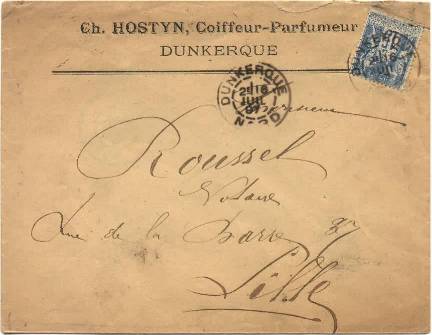 Ch. HOSTYN, Coiffeur-Parfumeur
DUNKERQUE
DUNKERQUE
2E 16
JUIL
97
NORD
Monsieur
Roussel
Notaire
Rue de la Barre 37
Lille